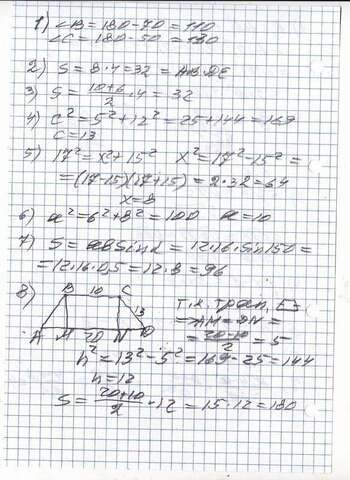 1) ∠B = 180 - 70 = 110
∠C = 180 - 50 = 130
2) S = 8 · 4 = 32 = AB·DE
3) S = (10+6)/2 · 4 = 32
4) c² = 5² + 12² = 25 + 144 = 169
c = 13
5) 17² = x² + 15² x² = 17² - 15² =
= (17-15)(17+15) = 2·32 = 64
x = 8
6) a² = 6² + 8² = 100 a = 10
7) S = ab sin α = 12·16·sin150 =
= 12·16·0,5 = 12·8 = 96
8) B 10 C
13
A M 20 N D
т.к. трап,
⇒ AM = DN =
= (20-10)/2 = 5
h² = 13² - 5² = 169 - 25 = 144
h = 12
S = (20+10)/2 · 12 = 15·12 = 180